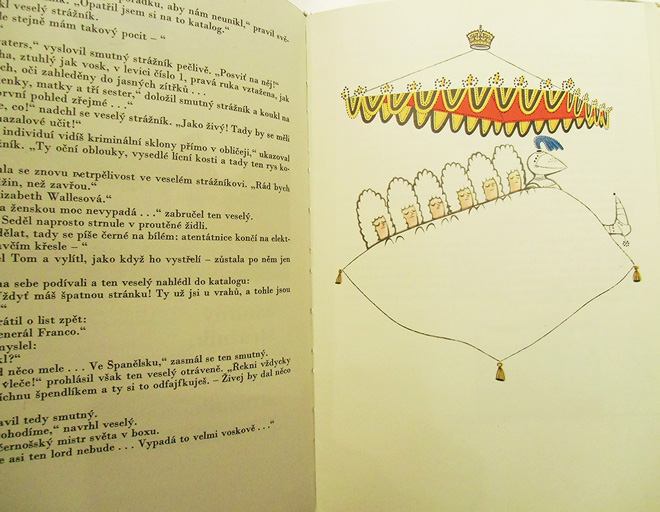 pořádku, aby nám neunikl,“ pravil svě.
kl veselý strážník. „Opatřil jsem si na to katalog.“
le stejně mám takový pocit – “
“
waters,“ vyslovil smutný strážník pečlivě. „Posviť na něj!“
ha, ztuhlý jak vosk, v levici číslo 1, pravá ruka vztažena, jak
ch, oči zahleděny do jasných zítřků . . .
enky, matky a tří sester,“ doložil smutný strážník a koukl na
první pohled zřejmé . . .“
e, co!“ nadchl se veselý strážník. „Jako živý! Tady by se měli
mazalové učit!“
individuí vidíš kriminální sklony přímo v obličeji,“ ukazoval
žník. „Ty oční oblouky, vysedlé lícní kosti a tady ten rys ko-
ala se znovu netrpělivost ve veselém strážníkovi. „Rád bych
džin, než zavřou.“
lizabeth Wallesová.“
a ženskou moc nevypadá . . .“ zabručel ten veselý.
Seděl naprosto strnule v proutěné židli.
dělat, tady se píše černé na bílém: atentátnice končí na elekt-
avčím křesle – “
el Tom a vylítl, jako když ho vystřelí – zůstala po něm jen
na sebe podívali a ten veselý nahlédl do katalogu:
Vždyť máš špatnou stránku! Ty už jsi u vrahů, a tohle jsou
“
rátil o list zpět:
enerál Franco.“
myslel:
kl?“
d něco mele . . . Ve Španělsku,“ zasmál se ten smutný.
vleče!“ prohlásil však ten veselý otráveně. „Řekni vždycky
íchnu špendlíkem a ty si to odfajfkuješ. – Živej by dal něco
avil tedy smutný.
ohodíme,“ navrhl veselý.
černošský mistr světa v boxu.
e asi ten lord nebude . . . Vypadá to velmi voskově . . .“